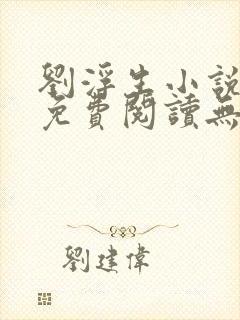 劉浮生小說
免費閱讀無
劉建偉